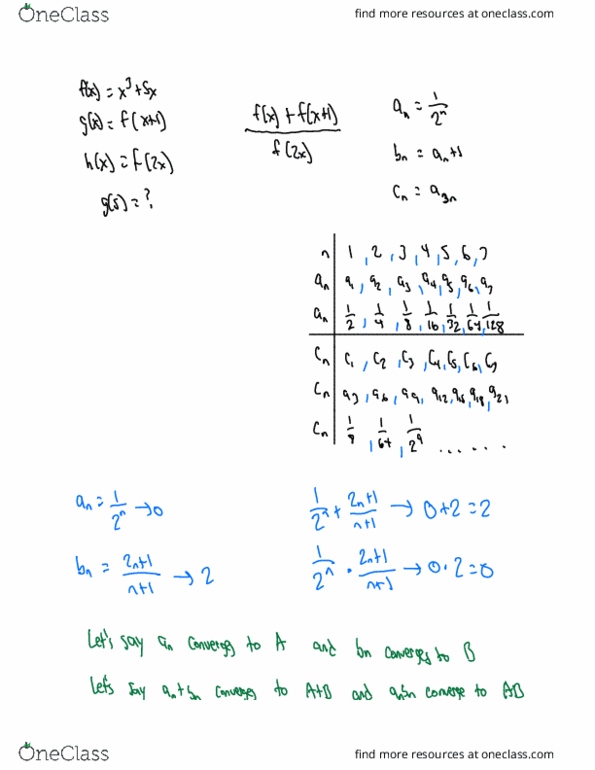 OneClass
find more resources at oneclass.com
f(x) = x³+5x
g(x) = f(x+1)
h(x) = f(2x)
g(5) = ?
f(x) + f(x+1)
f(2x)
aₙ = 1/2ⁿ
bₙ = aₙ+1
cₙ = a₃ₙ
n | 1, 2, 3, 4, 5, 6, 7
aₙ | a₁, a₂, a₃, a₄, a₅, a₆, a₇
aₙ | 1/2, 1/4, 1/8, 1/16, 1/32, 1/64, 1/128
cₙ | c₁, c₂, c₃, c₄, c₅, c₆, c₇
cₙ | a₃, a₆, a₉, a₁₂, a₁₅, a₁₈, a₂₁
cₙ | 1/8, 1/64, 1/2⁹, .......
aₙ = 1/2ⁿ → 0
bₙ = 2n+1/n+1 → 2
1/2ⁿ + 2n+1/n+1 → 0+2 = 2
1/2ⁿ · 2n+1/n+1 → 0·2 = 0
Let's say aₙ converges to A and bₙ converges to B
Let's say aₙ+bₙ converges to A+B and aₙbₙ converge to AB
OneClass
find more resources at oneclass.com